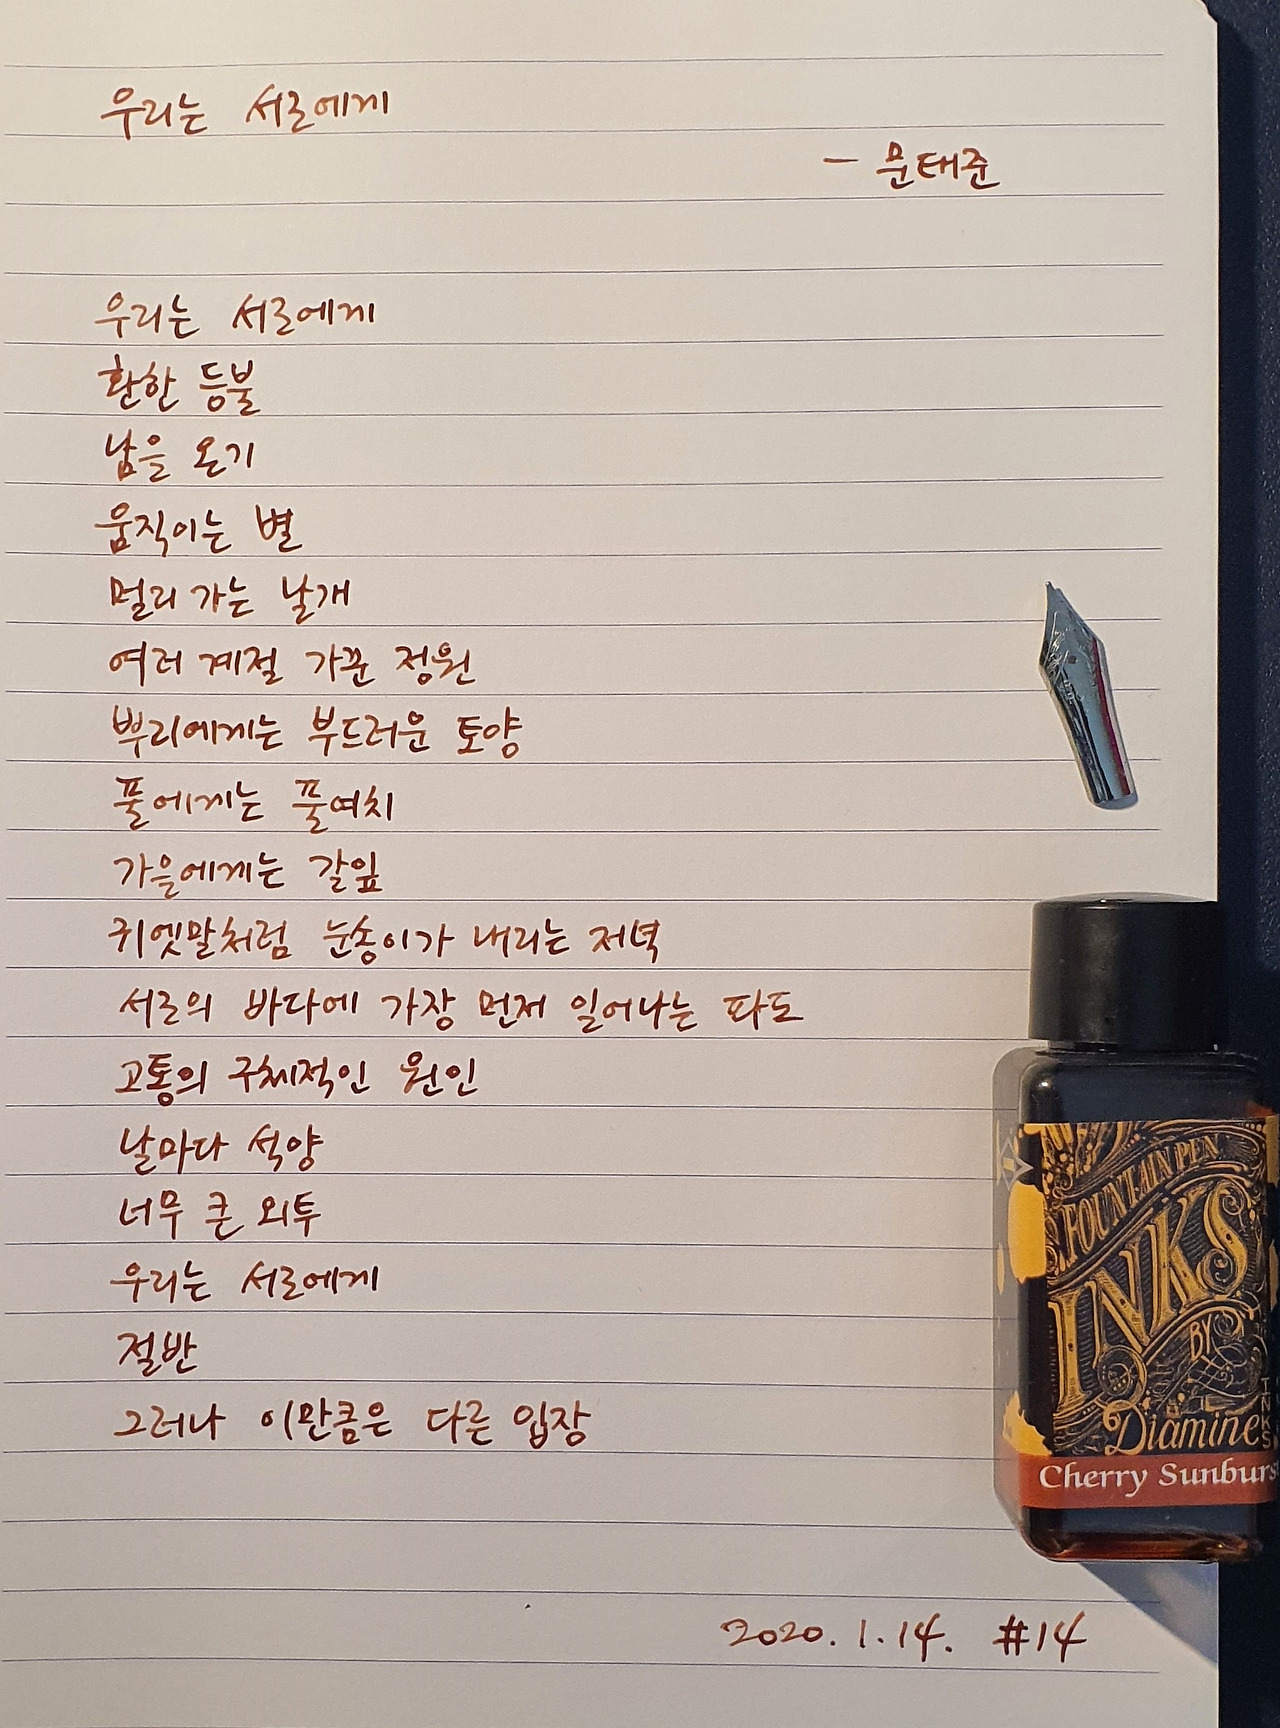 우리는 서로에게
- 문태준
우리는 서로에게
환한 등불
남을 온기
움직이는 별
멀리 가는 날개
여러 계절 가꾼 정원
뿌리에게는 부드러운 토양
풀에게는 풀여치
가을에게는 갈잎
귀엣말처럼 눈송이가 내리는 저녁
서로의 바다에 가장 먼저 일어나는 파도
고통의 구체적인 원인
날마다 석양
너무 큰 외투
우리는 서로에게
절반
그러나 이만큼은 다른 입장
FOUNTAIN PEN
INKS
BY
Diamine
INKS
Cherry Sunburs
2020. 1. 14. #14